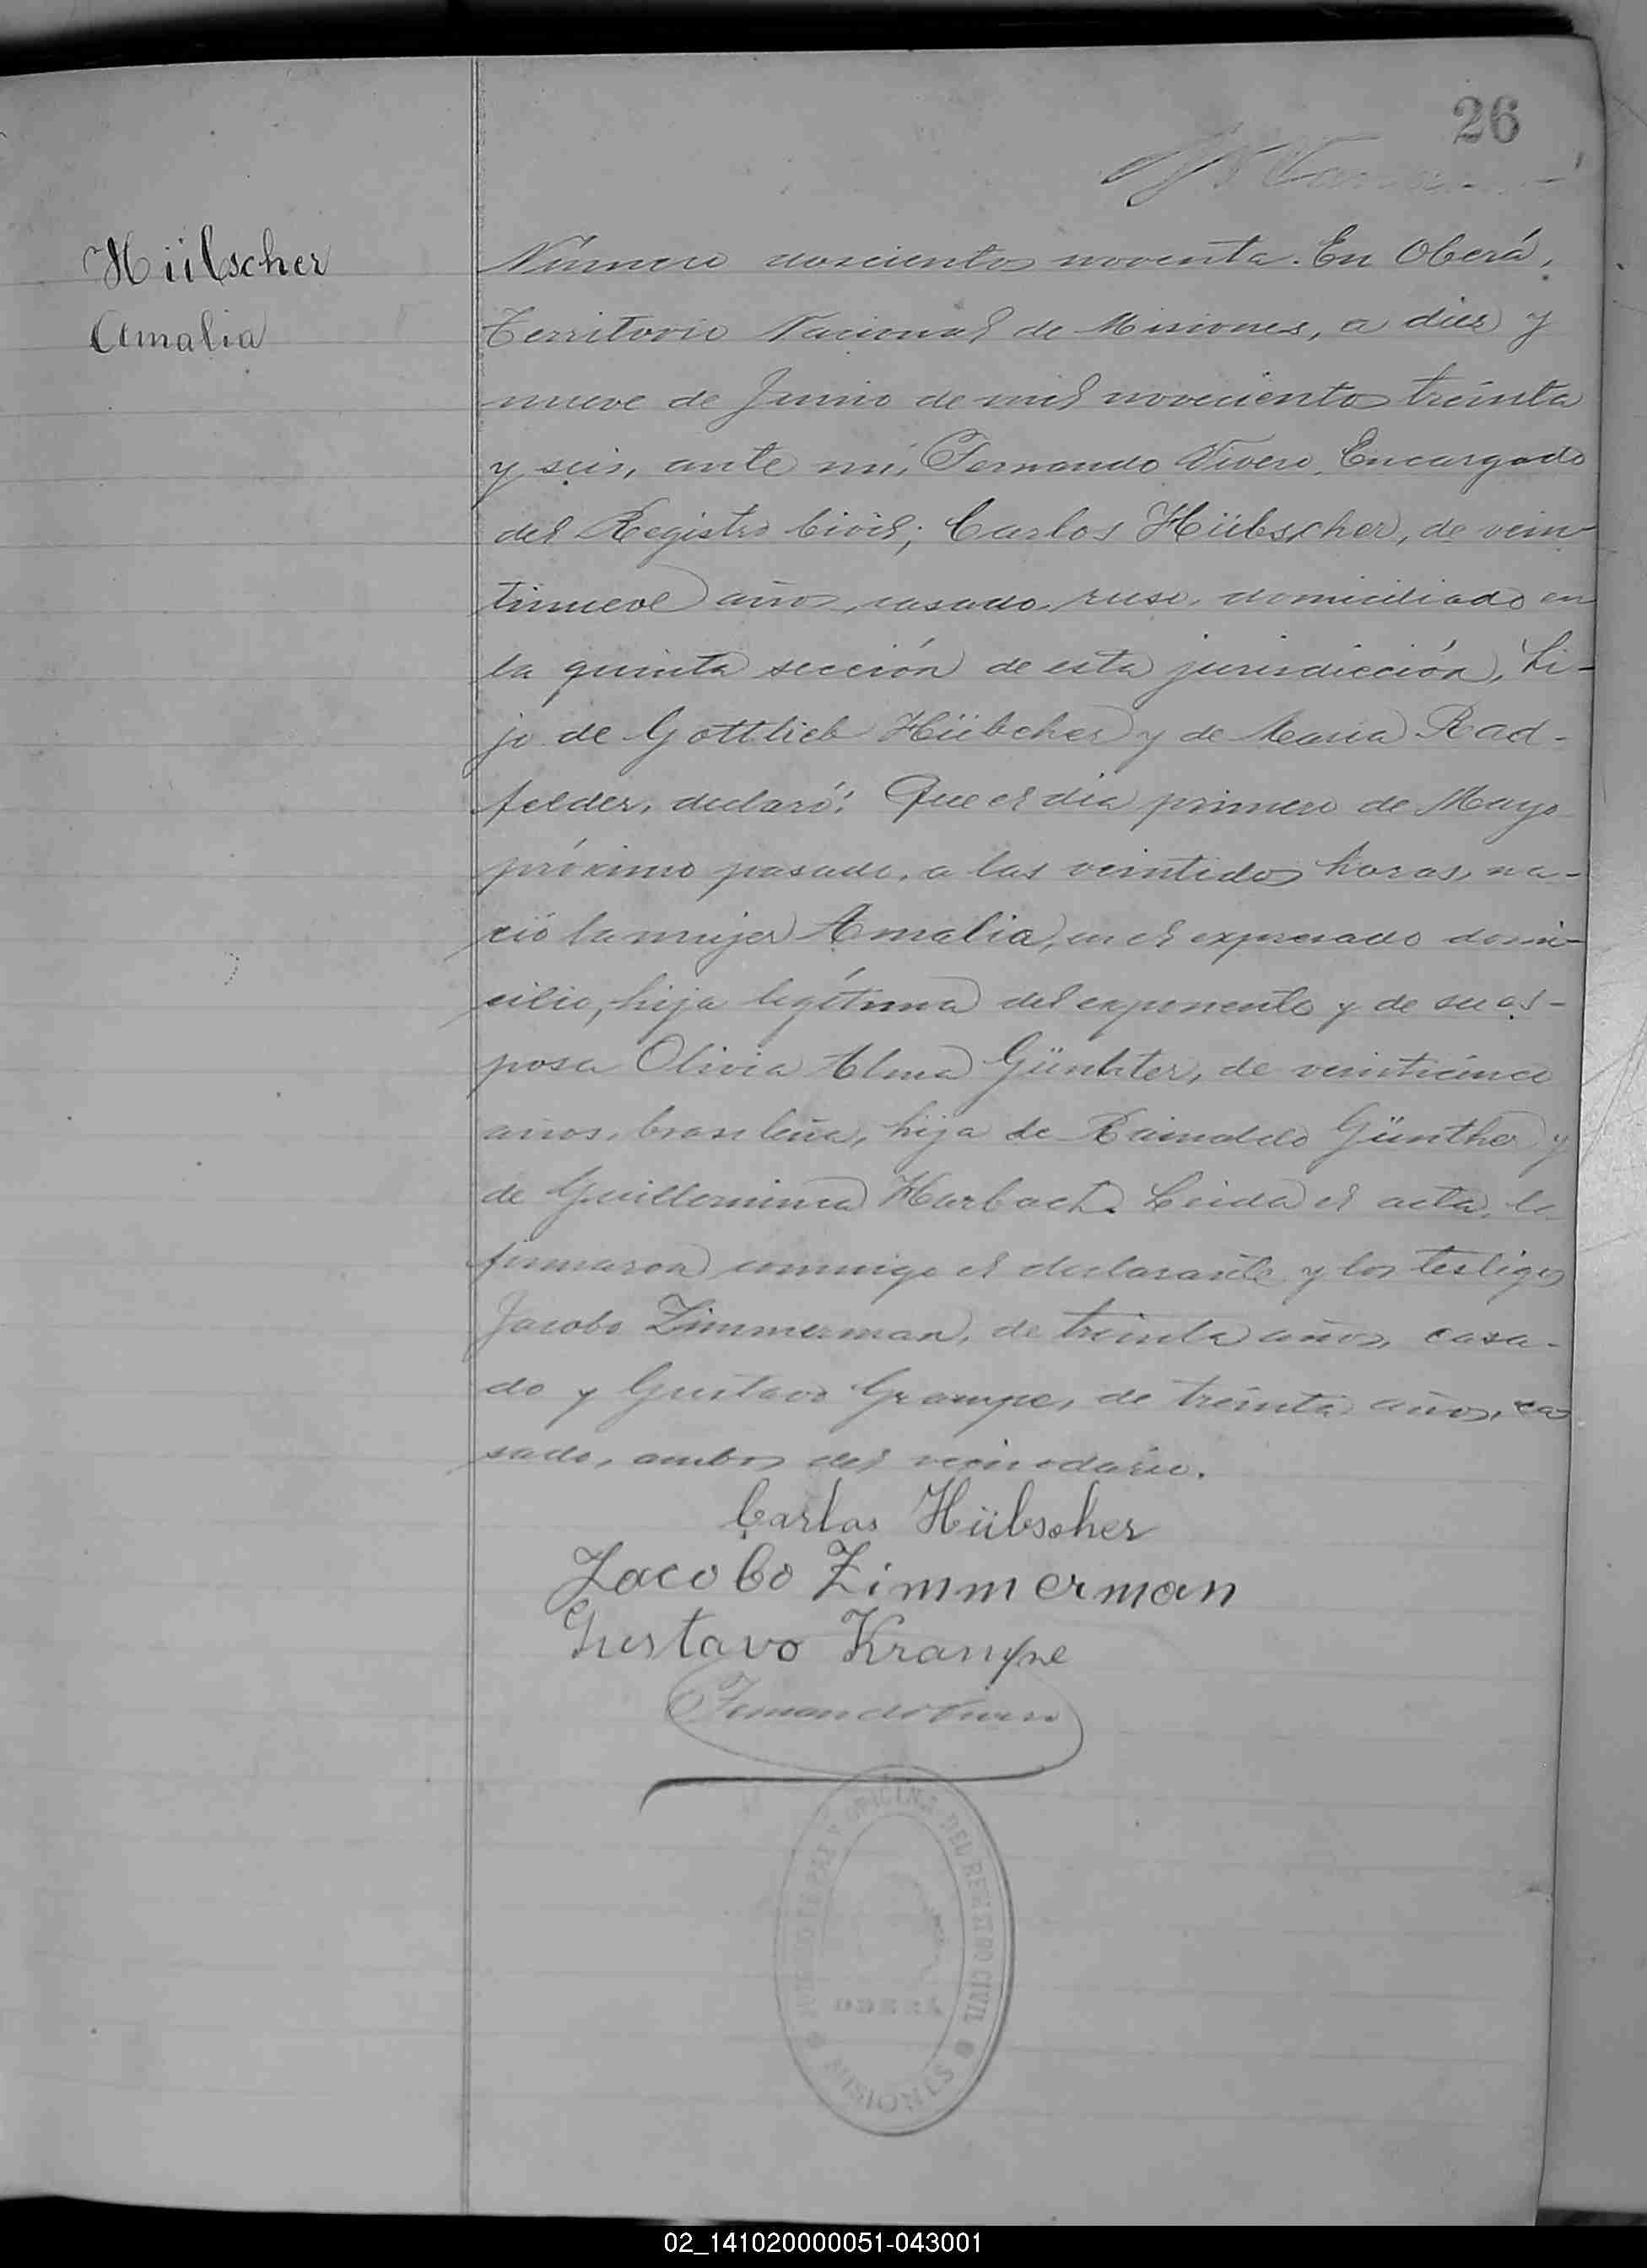 26
Hübscher
Amalia
Número doscientos noventa. En Oberá,
Territorio Nacional de Misiones, a diez y
nueve de Junio de mil novecientos treinta
y seis, ante mí, Fernando Vivero, Encargado
del Registro Civil; Carlos Hübscher, de vein-
tinueve años, casado, ruso, domiciliado en
la quinta sección de esta jurisdicción, hi-
jo de Gottlieb Hübcher y de Maria Rad-
felder, declaró: Que el día primero de Mayo
próximo pasado, a las veintidos horas, na-
ció la mujer Amalia, en el expresado domi-
cilio, hija legítima del exponente y de su es-
posa Olivia Alma Günhter, de veinticinco
años, brasileña, hija de Rainoldo Günther y
de Guillermina Harbach. Leida el acta, la
firmaron conmigo el declarante y los testigos
Jacobo Zimmerman, de treinta años, casa-
do y Gustavo Grampe, de treinta años, ca
sado, ambos del vecindario.
Carlos Hübscher
Jacobo Zimmerman
Gustavo Krampe
Fernando Vivero
JUZGADO DE PAZ Y OFICINA DEL REGISTRO CIVIL
OBERÁ
MISIONES
02_141020000051-043001